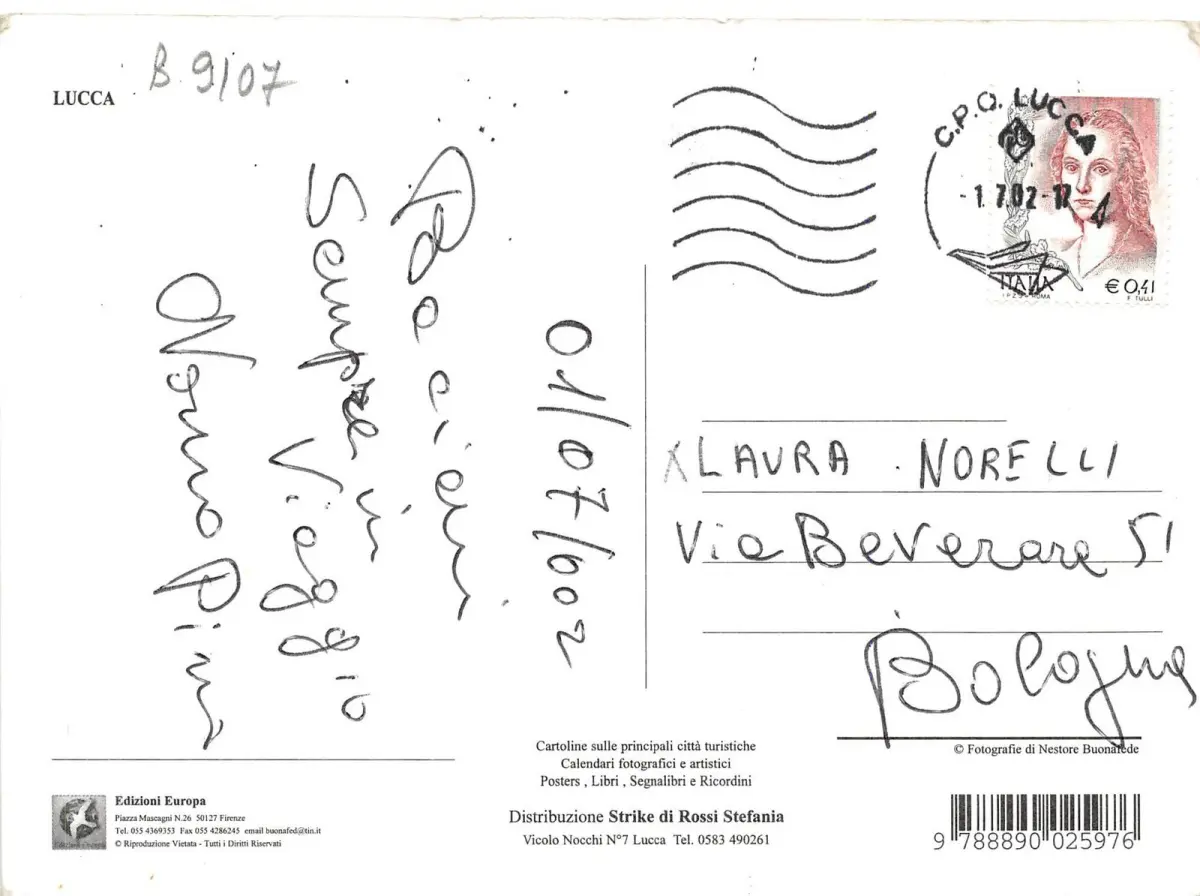 LUCCA
B. 9/07
C.P.O. LUCCA
-1.7.02-17
ITALIA
I.P.Z.S. - ROMA
€ 0,41
F. TULLI
01/07/002
Bacioni
Sempre in
Viaggio
Nonno Pini
X LAURA NORELLI
Via Beverara 51
Bologna
© Fotografie di Nestore Buonafede
Cartoline sulle principali città turistiche
Calendari fotografici e artistici
Posters , Libri , Segnalibri e Ricordini
Distribuzione Strike di Rossi Stefania
Vicolo Nocchi N°7 Lucca Tel. 0583 490261
Edizioni Europa
Piazza Mascagni N.26 50127 Firenze
Tel. 055 4369353 Fax 055 4286245 email buonafed@tin.it
© Riproduzione Vietata - Tutti i Diritti Riservati
9 788890 025976